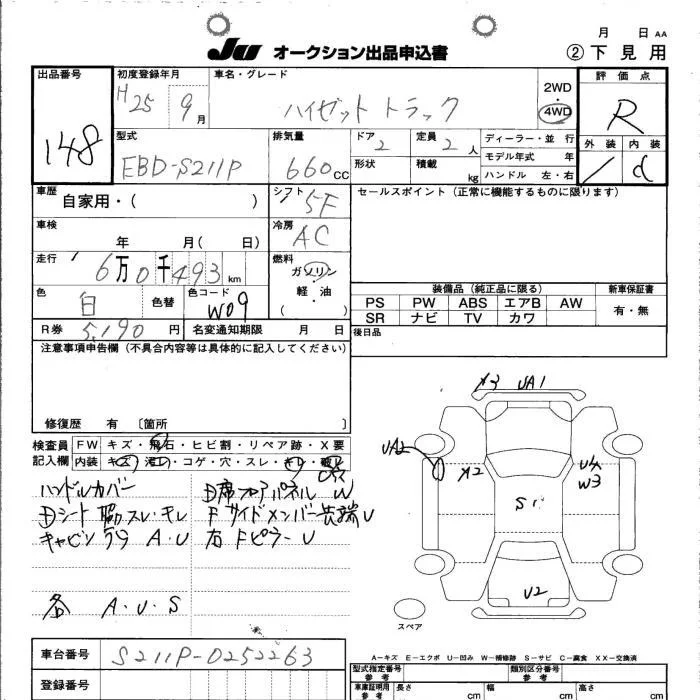 月 日 AA
JU オークション出品申込書 ②下見用
出品番号 初度登録年月 車名・グレード 2WD 評価点
148 H25 9月 ハイゼットトラック ・ 4WD R
型式 排気量 ドア 2 定員 2人 ディーラー・並行 外装 内装
EBD-S211P 660cc 形状 積載 kg モデル年式 年 d
ハンドル 左・右
車歴 自家用・( ) シフト 5F セールスポイント(正常に機能するものに限ります)
車検 年 月( 日) 冷房 AC
走行 6万0千493km 燃料 ガソリン
軽油
( )
色 白 色替 色コード W09
装備品(純正品に限る) 新車保証書
PS PW ABS エアB AW 有・無
SR ナビ TV カワ
R券 5,190円 名変通知期限 月 日 後日品
注意事項申告欄(不具合内容等は具体的に記入してください)
修復歴 有 〔箇所 〕
検査員 FW キズ・飛石・ヒビ割・リペア跡・X要
記入欄 内装 キズ・汚れ・コゲ・穴・スレ・キレ・破
ハンドルカバー D席フロアパネル W
Dシート 脇スレ・キレ Fサイドメンバー先端U
キャビン A.U 右FピラーU
各 A・U・S
UA1
UA2
A2
W3
S1
U2
スペア
A-キズ E-エクボ U-凹み W-補修跡 S-サビ C-腐食 XX-交換済
車台番号 S211P-0252263
登録番号
型式指定番号 類別区分番号
参考 参考
車庫証明用 長さ 幅 高さ
参考 cm cm cm